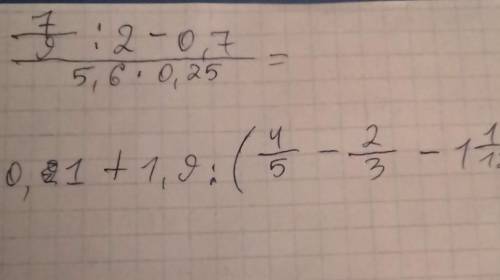 7/9 : 2 - 0,7
5,6 · 0,25 =
0,21 + 1,9 : ( 4/5 - 2/3 - 1 1/1